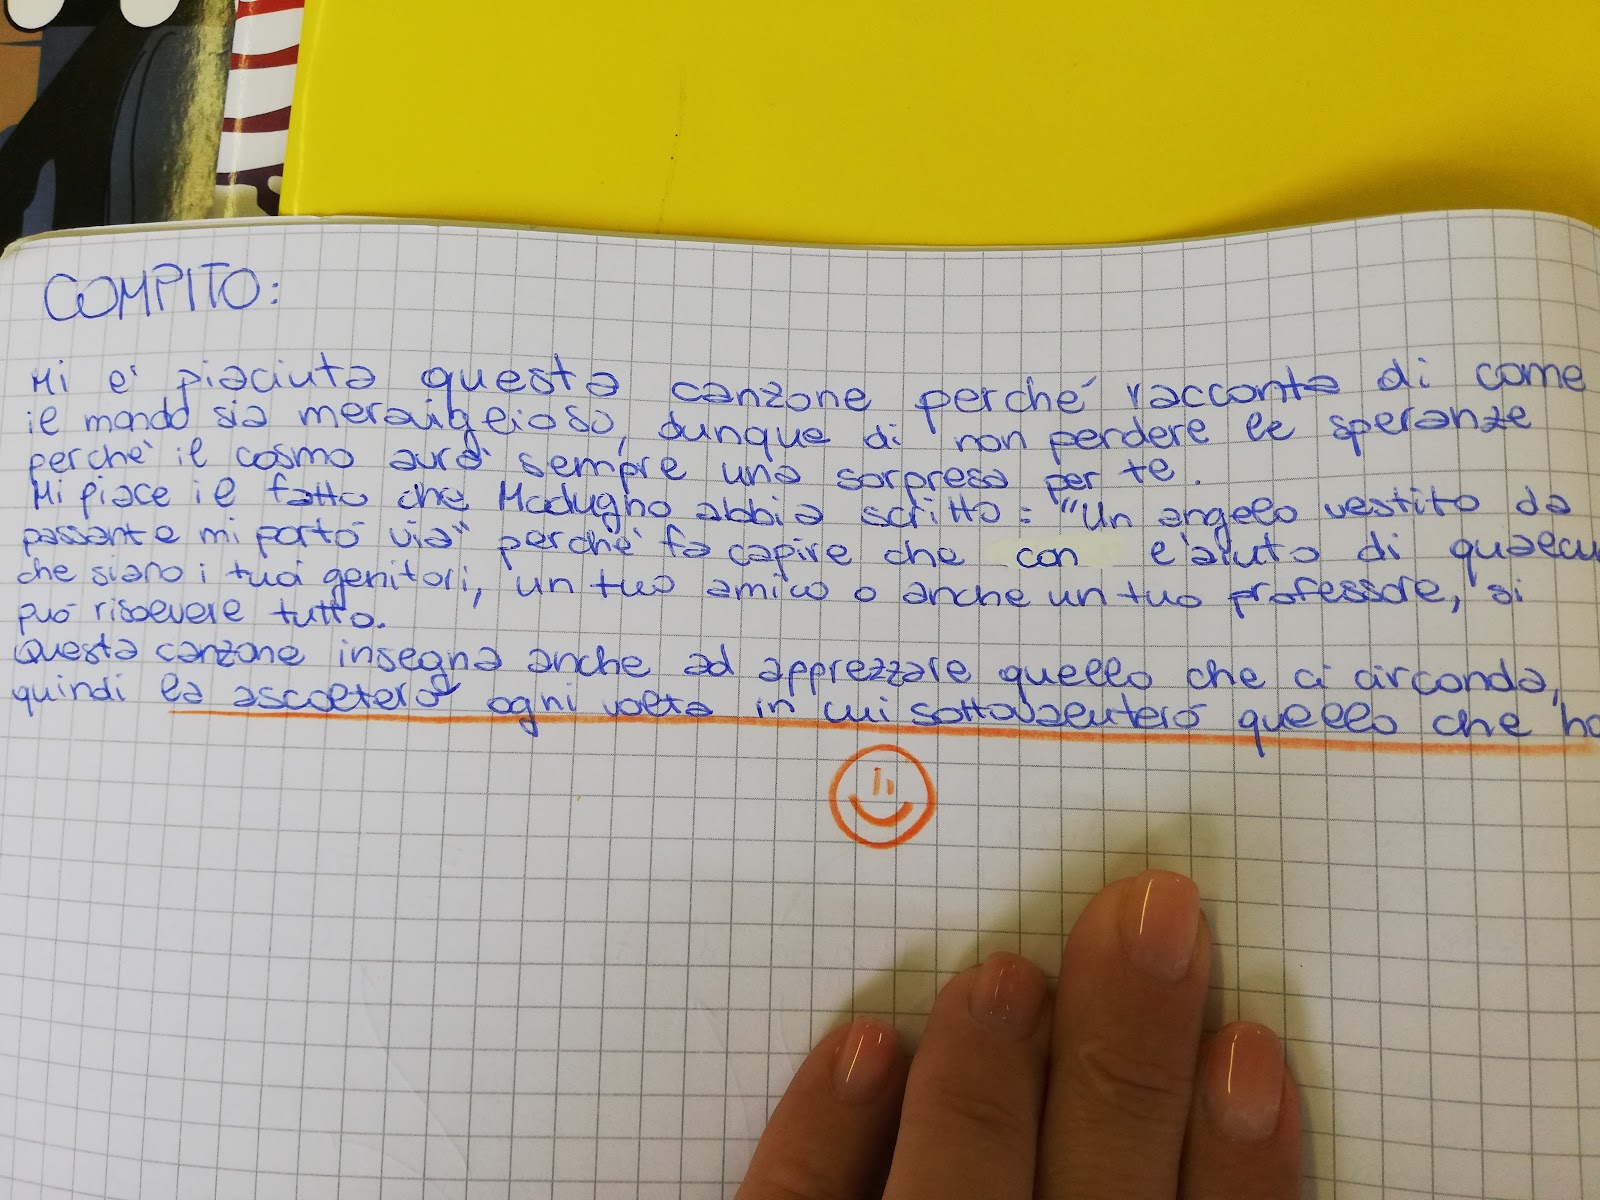 COMPITO:
Mi è piaciuta questa canzone perché racconta di come
il mondo sia meraviglioso, dunque di non perdere le speranze
perchè il cosmo avrà sempre una sorpresa per te.
Mi piace il fatto che Modugno abbia scritto: "Un angelo vestito da
passante mi portò via" perché fa capire che con l'aiuto di qualcu
che siano i tuoi genitori, un tuo amico o anche un tuo professore, si
può risolvere tutto.
Questa canzone insegna anche ad apprezzare quello che ci circonda,
quindi la ascolterò ogni volta in cui sottovaluterò quello che ho